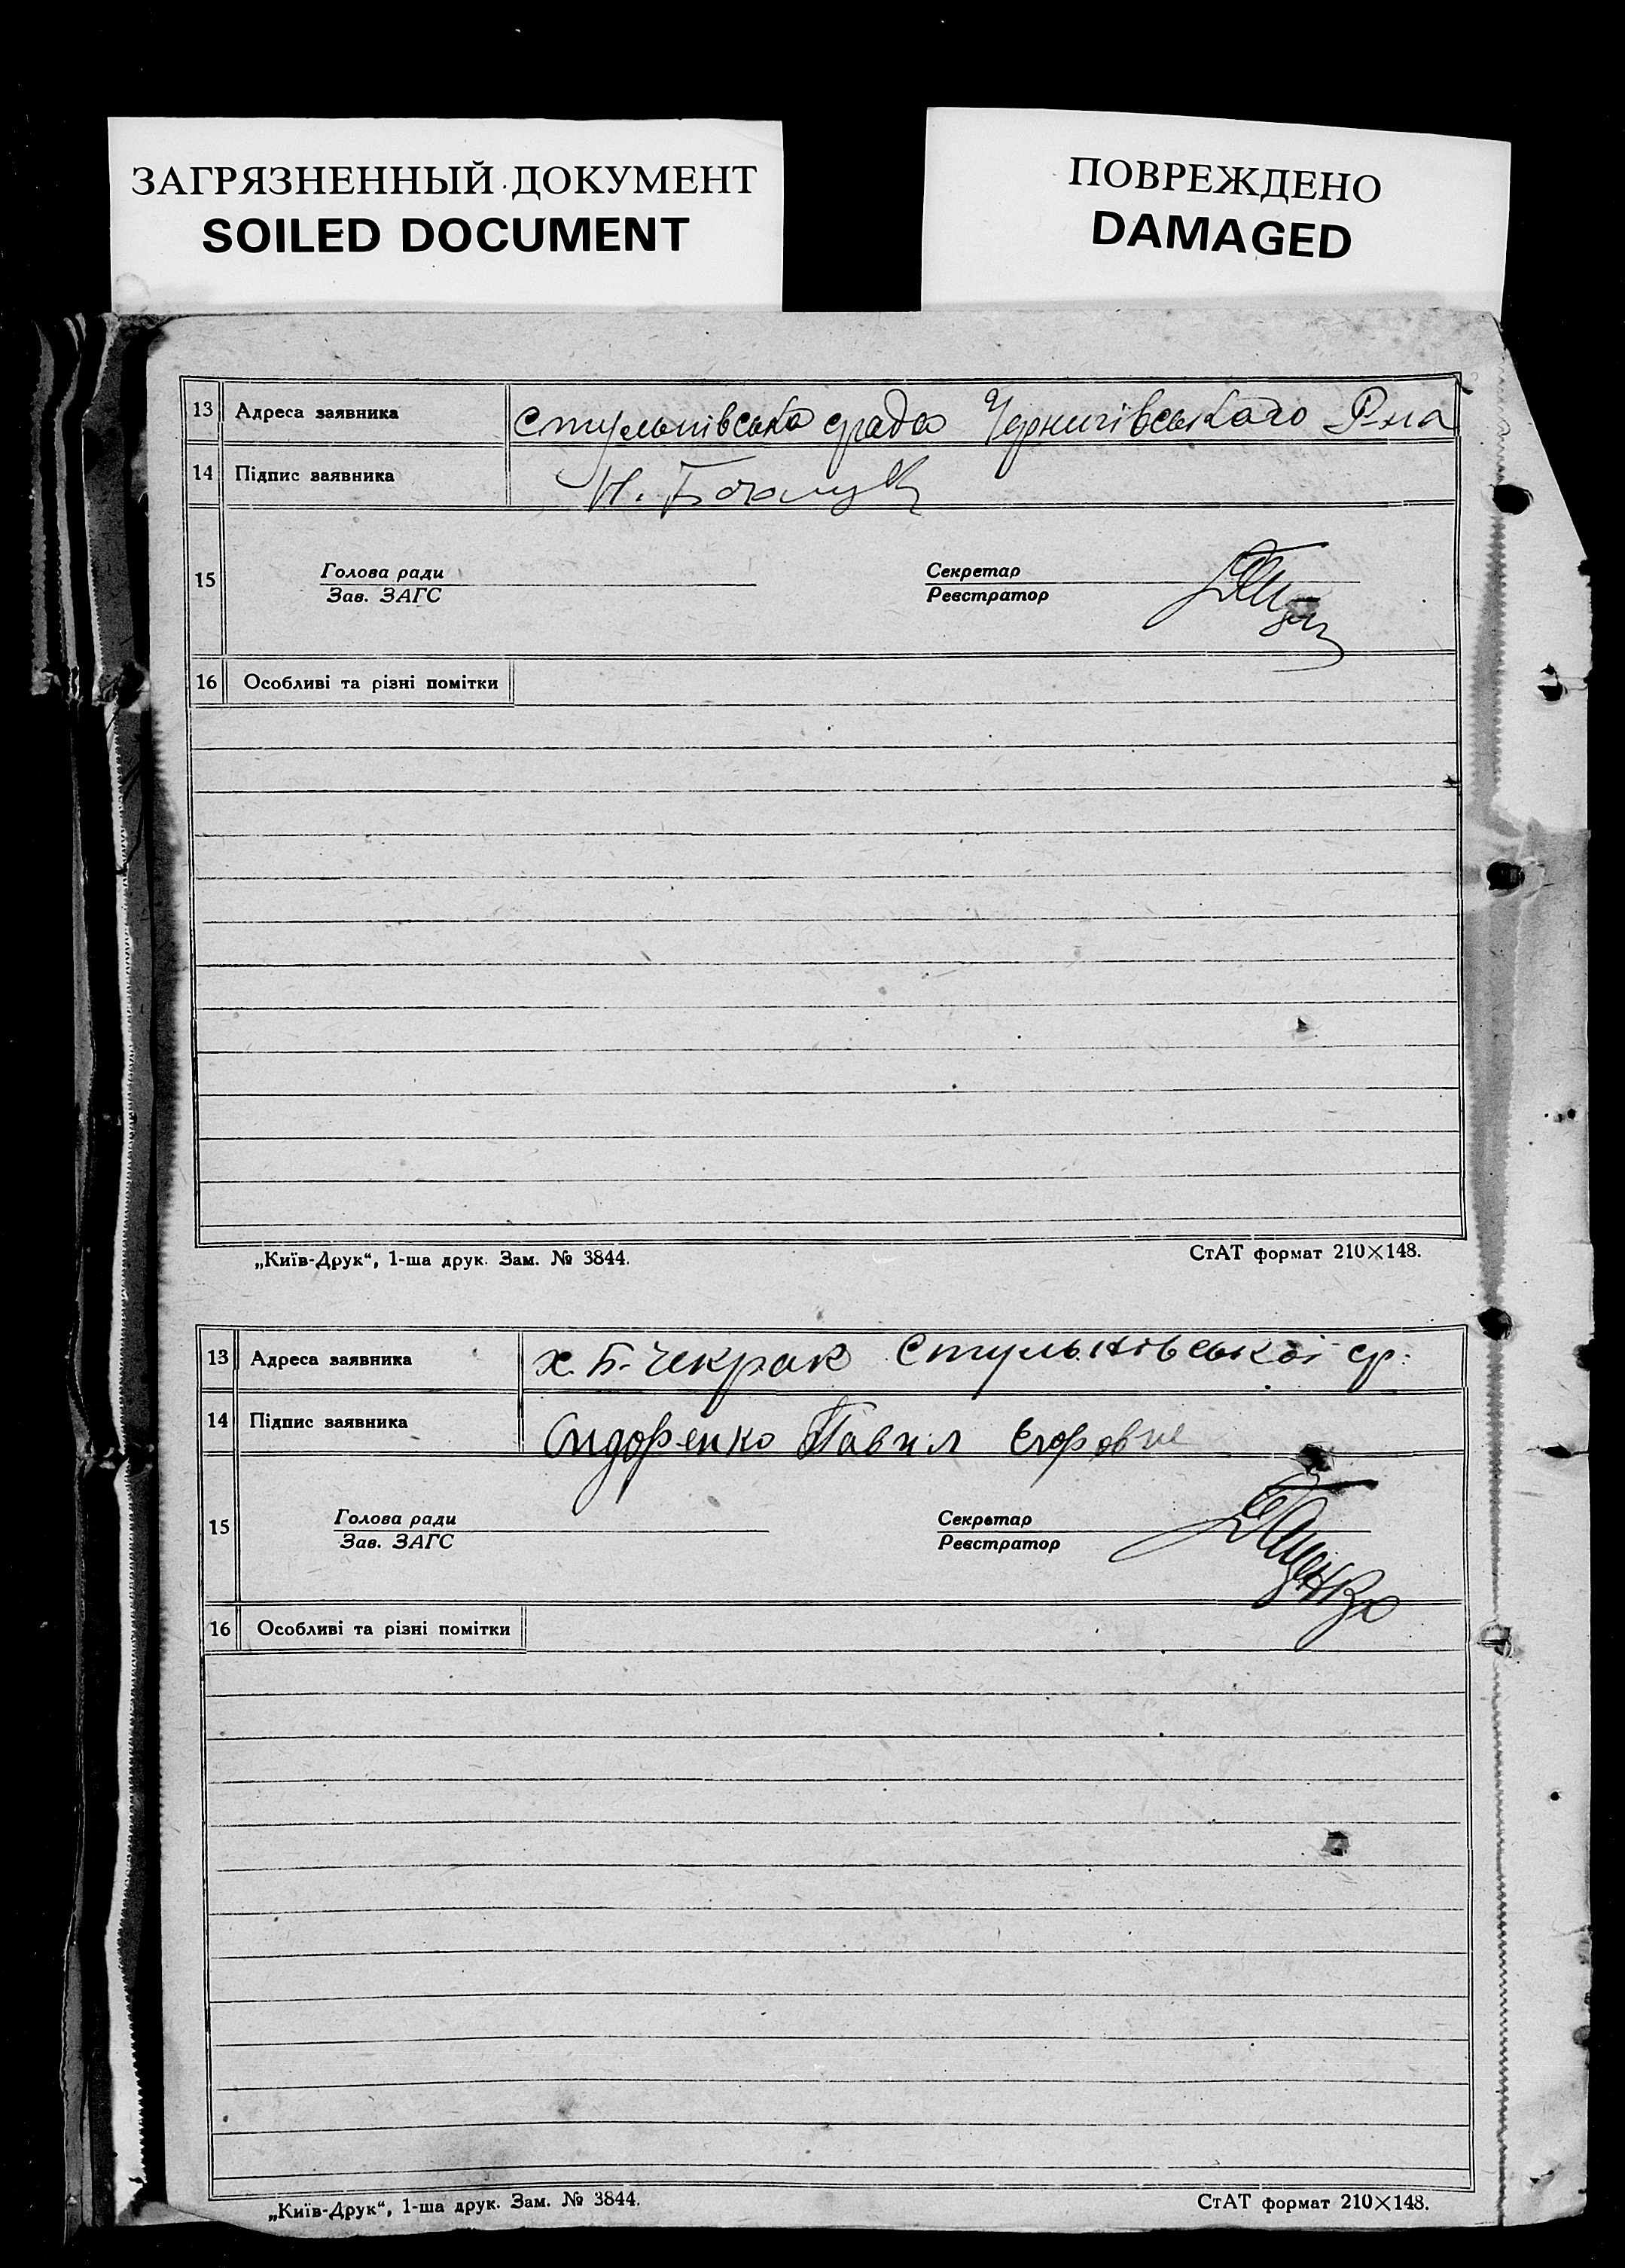 ЗАГРЯЗНЕННЫЙ ДОКУМЕНТ
SOILED DOCUMENT
ПОВРЕЖДЕНО
DAMAGED
13 Адреса заявника Стульнівська срада Чернигівського Р-на
14 Підпис заявника
15 Голова ради Секретар
Зав. ЗАГС Реєстратор
16 Особливі та різні помітки
„Київ-Друк“, 1-ша друк. Зам. № 3844. СтАТ формат 210×148.
13 Адреса заявника х. Б-Чекрак Стульнівської ср.
14 Підпис заявника Сидоренко Павил Егорович
15 Голова ради Секретар
Зав. ЗАГС Реєстратор
16 Особливі та різні помітки
„Київ-Друк“, 1-ша друк. Зам. № 3844. СтАТ формат 210×148.